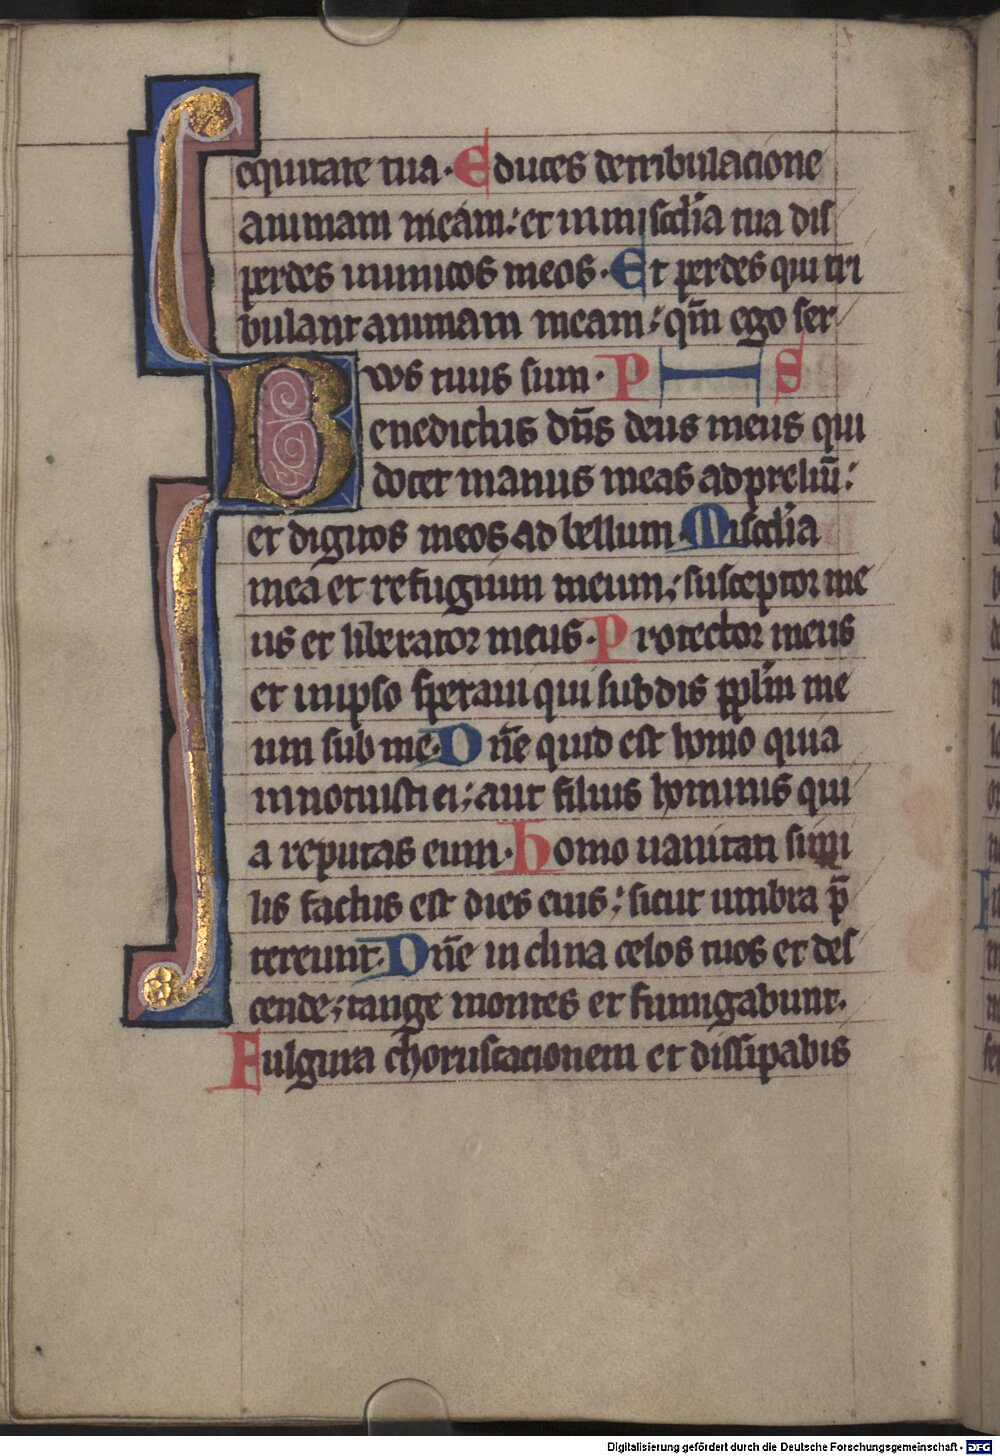 equitate tua. Educes de tribulacione
animam meam: et in mis̄cdīa tua dis
perdes inimicos meos. Et perdes qui tri
bulant animam meam: qm̄ ego ser
vus tuus sum. P S
Benedictus dn̄s deus meus qui
docet manus meas ad preliū:
et digitos meos ad bellum. Mis̄cdīa
mea et refugium meum: susceptor me
us et liberator meus. Protector meus
et in ipso speraui qui subdis pplm̄ me
um sub me. Dn̄e quid est homo quia
innotuisti ei: aut filius hominis qui
a reputas eum. homo uanitati simi
lis factus est dies eius: sicut umbra p̄
tereunt. Dn̄e inclina celos tuos et des
cende: tange montes et fumigabunt.
Fulgura choruscacionem et dissipabis
Digitalisierung gefördert durch die Deutsche Forschungsgemeinschaft - DFG